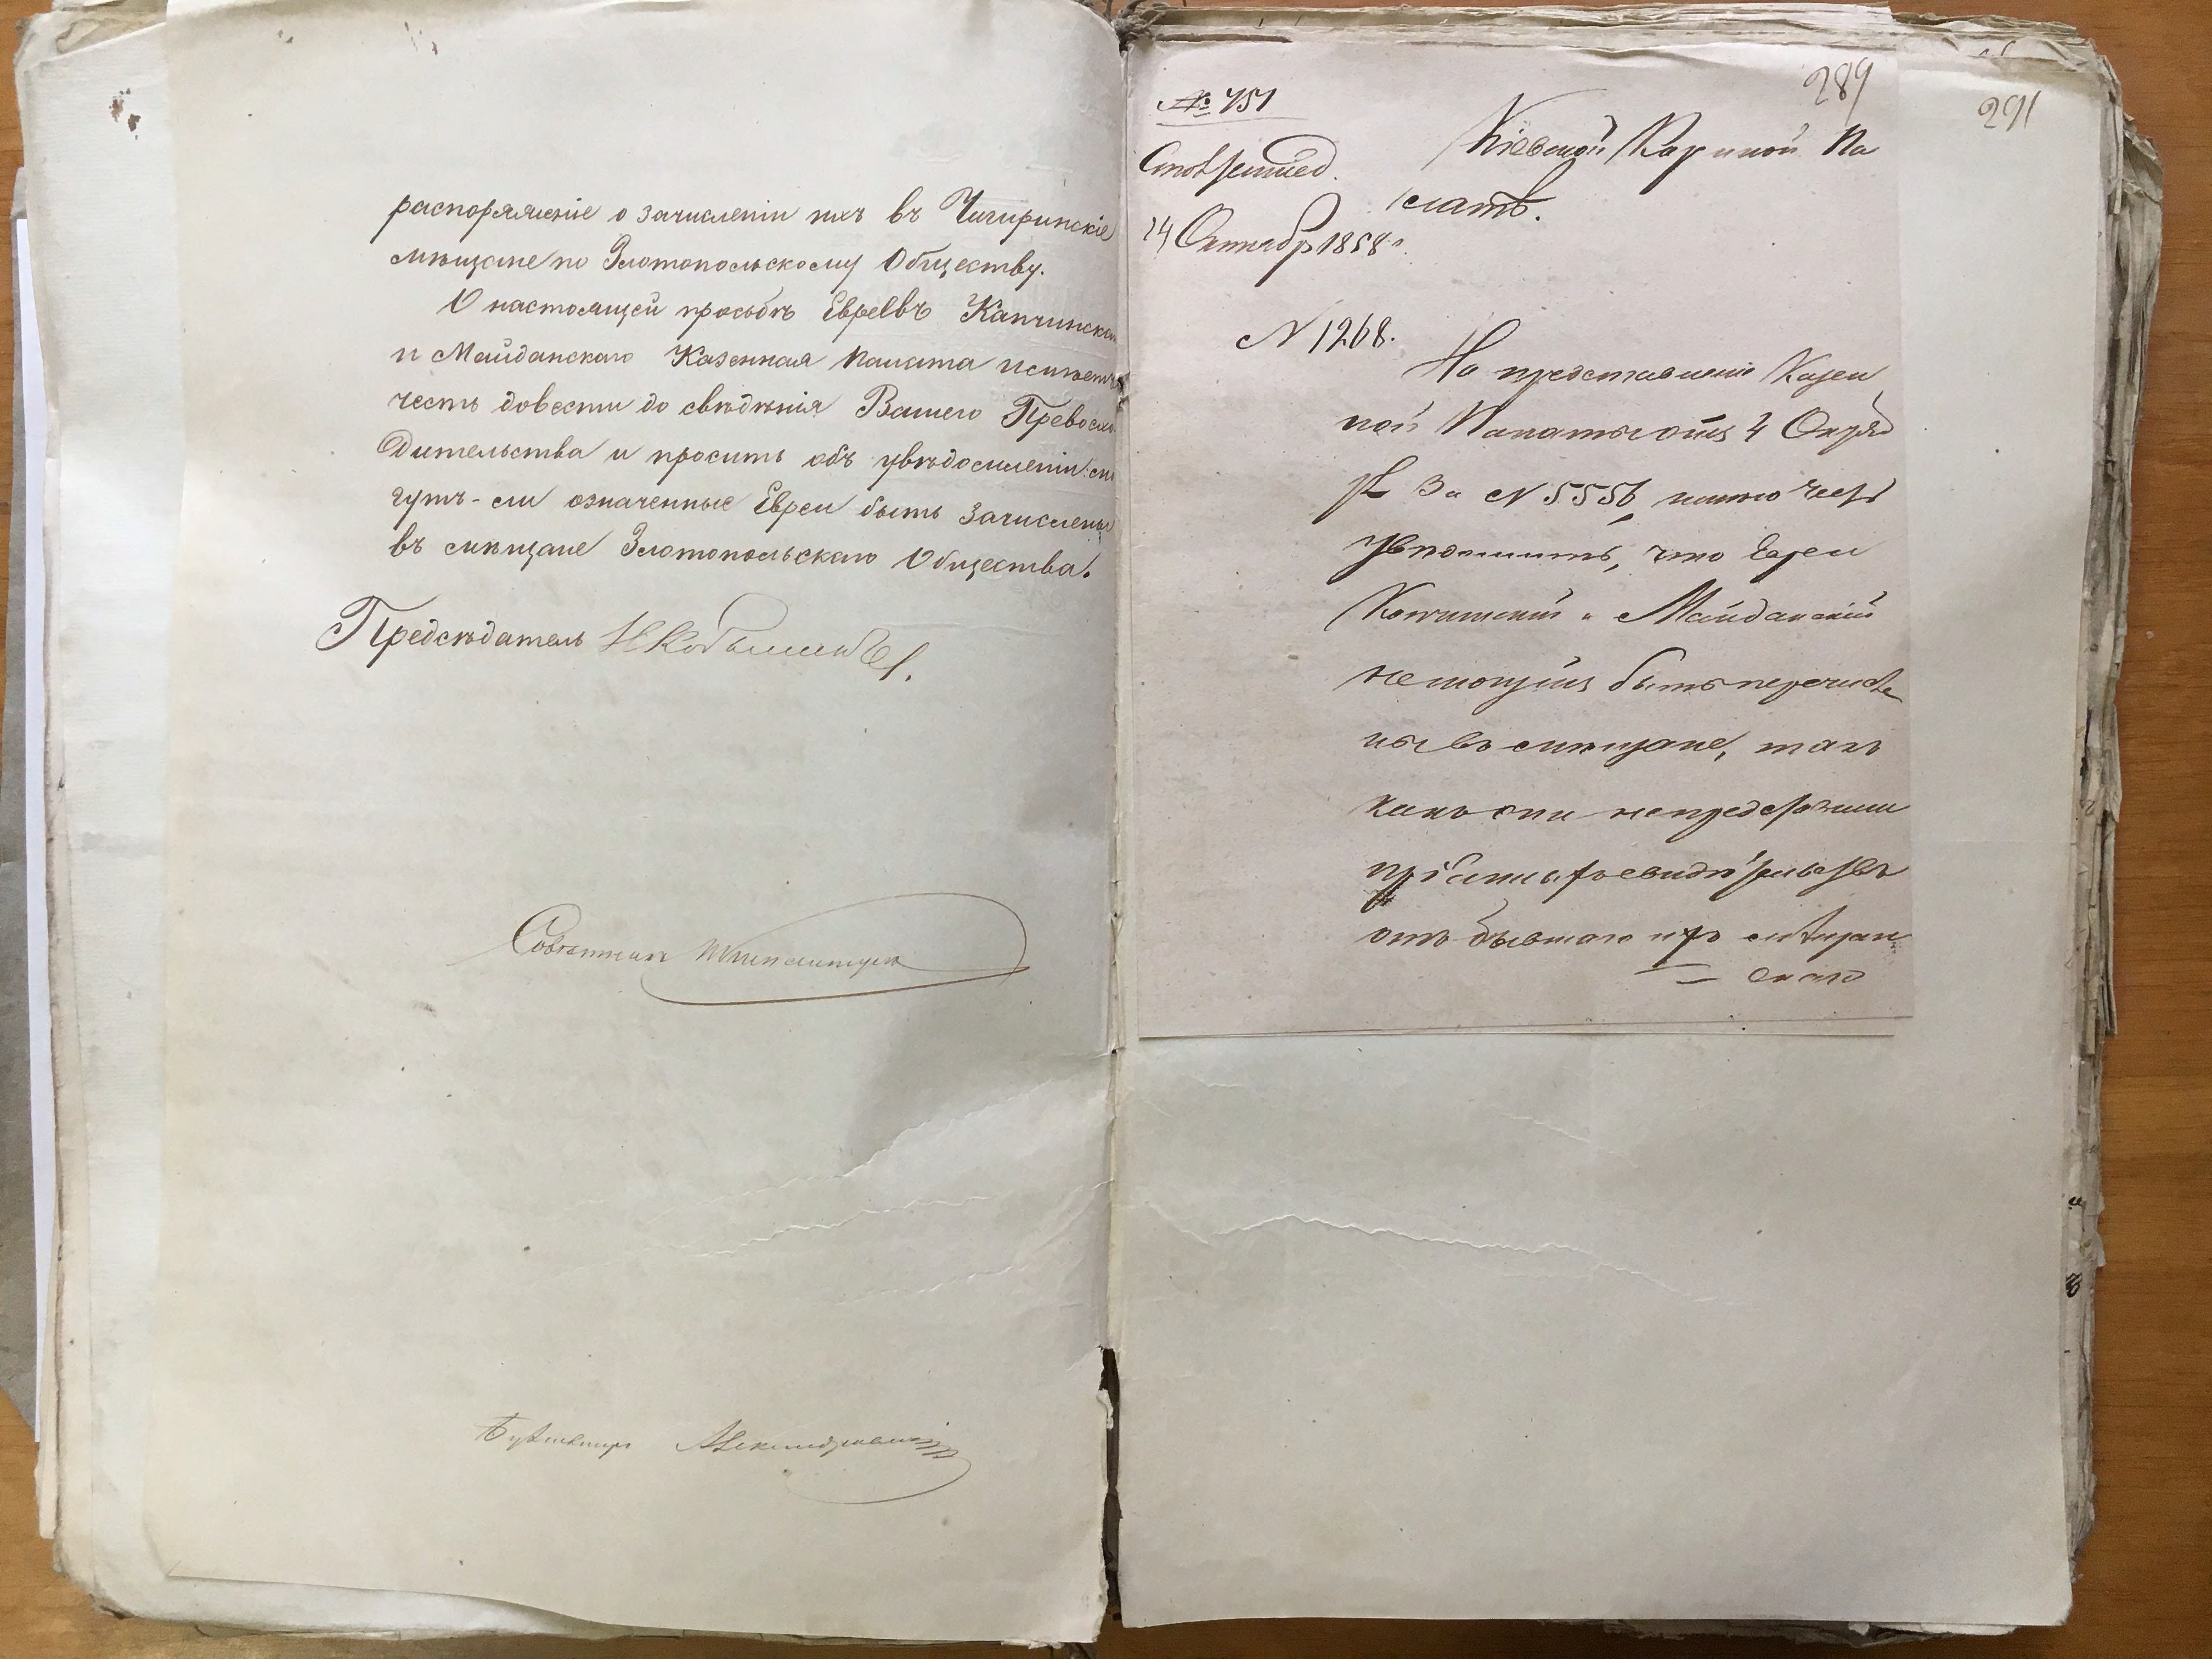 распоряженіе о зачисленіи ихъ въ Чигиринскіе
мѣщане по Златопольскому Обществу.
О настоящей просьбѣ Евреевъ
и Майданскаго Казенная Палата имѣетъ
честь довести до свѣдѣнія Вашего Превосхо
дительства и просить объ увѣдомленіи: мо
гутъ-ли означенные Евреи быть зачислены
въ мѣщане Златопольскаго Общества.
Предсѣдатель
Совѣтникъ
Бухгалтеръ
289
291
№ 751
Кіевской Казенной Па
латѣ.
24 Октября 1858 г.
N 1268.
На представленіе Казен
ной Палаты отъ 4 Октяб
ря за N 5556, имѣю честь
увѣдомить, что Евреи
и Майданскій
не могутъ быть перечисле
ны въ мѣщане, такъ
какъ они не представили
отъ бывшаго ихъ мѣщан
скаго